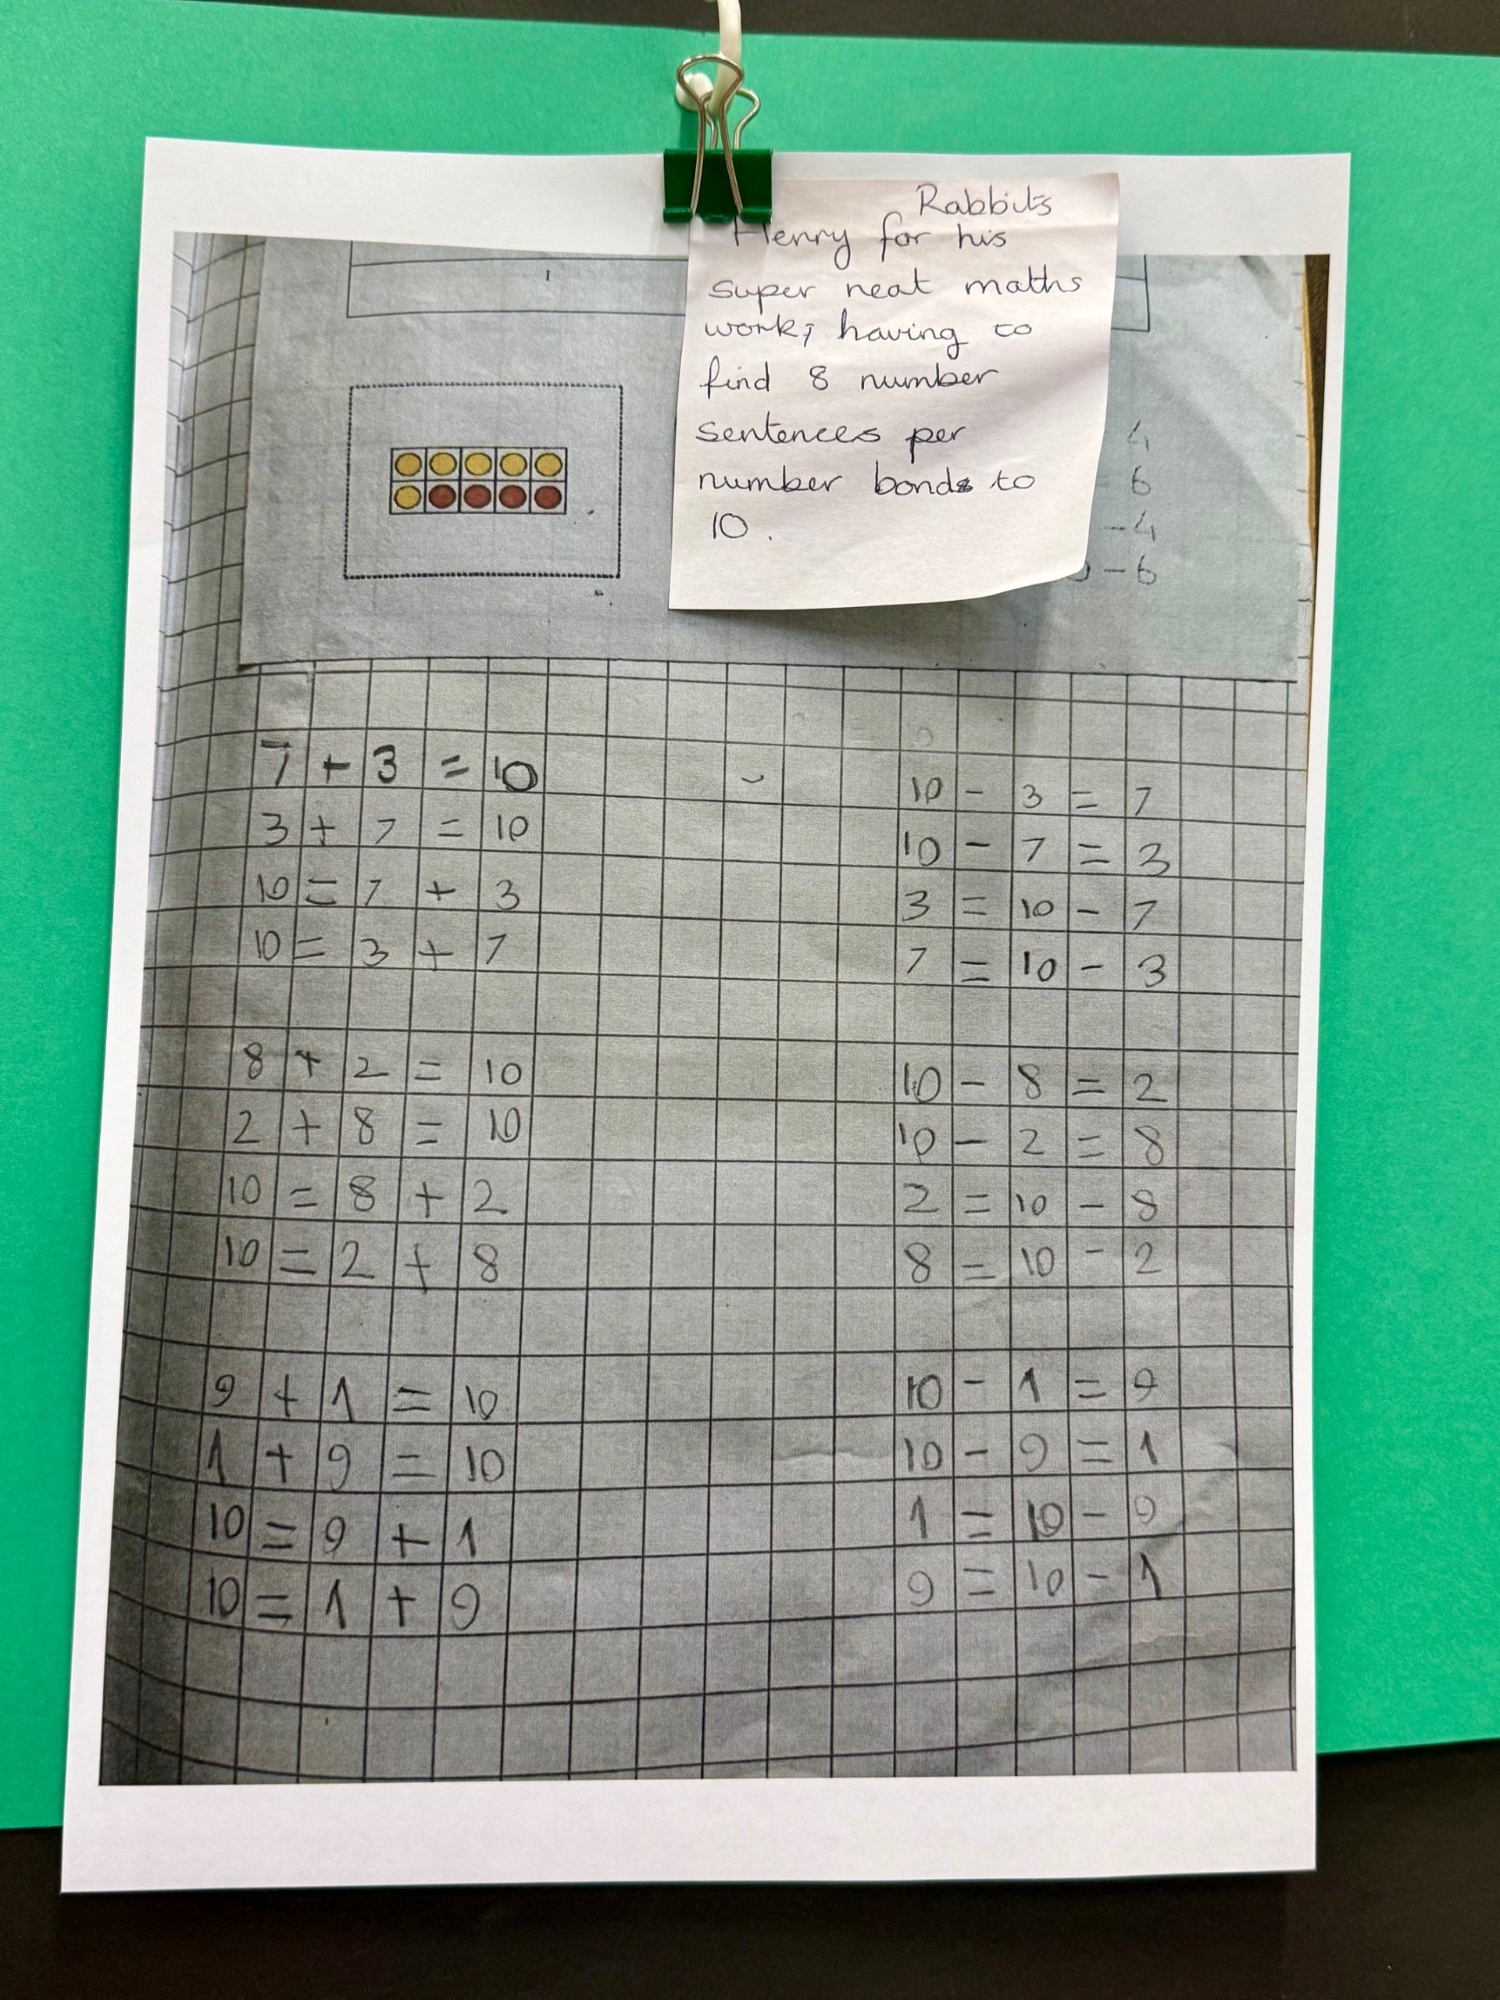 Rabbits
Henry for his
super neat maths
work, having to
find 8 number
sentences per
number bonds to
10.
4
6
-4
-6
7 + 3 = 10
3 + 7 = 10
10 = 7 + 3
10 = 3 + 7
10 - 3 = 7
10 - 7 = 3
3 = 10 - 7
7 = 10 - 3
8 + 2 = 10
2 + 8 = 10
10 = 8 + 2
10 = 2 + 8
10 - 8 = 2
10 - 2 = 8
2 = 10 - 8
8 = 10 - 2
9 + 1 = 10
1 + 9 = 10
10 = 9 + 1
10 = 1 + 9
10 - 1 = 9
10 - 9 = 1
1 = 10 - 9
9 = 10 - 1